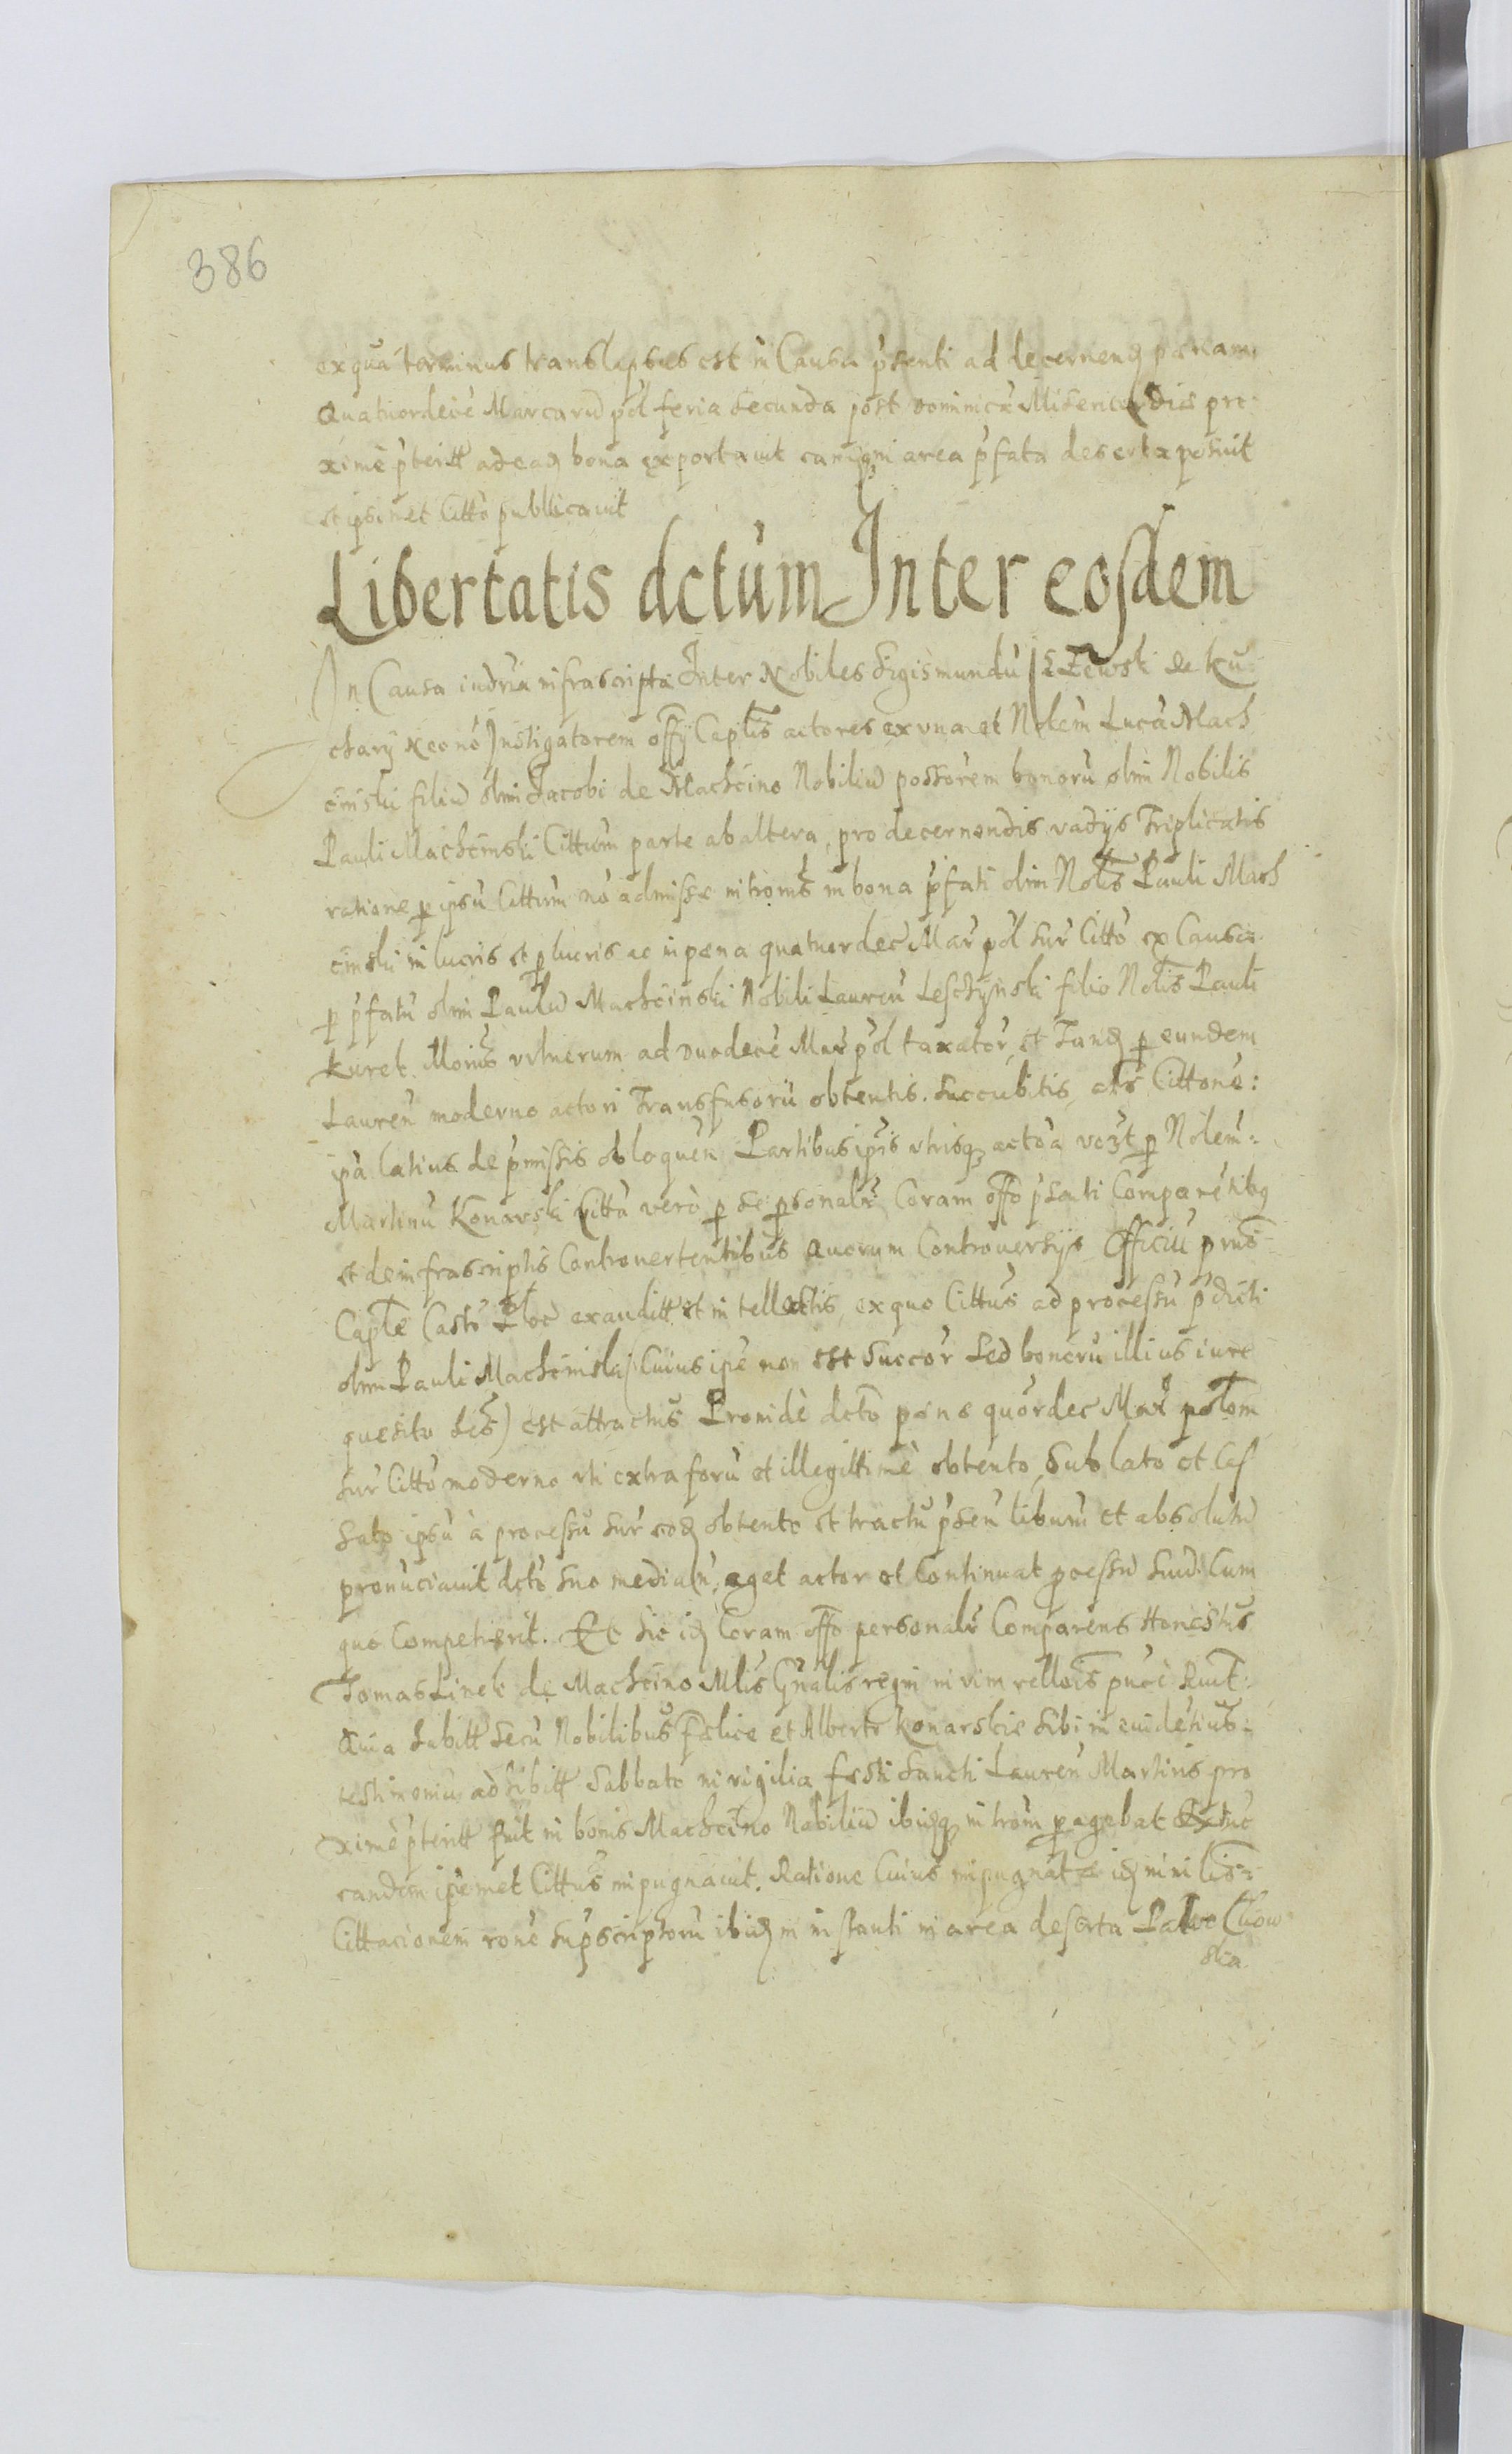 386
ex qua terminus translapsus est in Causa pnsenti ad decernend poenam
Quatuordecē Marcarū pol feria secunda post dominicā Misericordiae pro
ximē pteritt ad ead bona exportavit eamqͣ in area pfata deserta posuit
et ipsimet Citto publicavit
Libertatis dctum Inter eosdem
In Causa iudria infrascripta Inter Nobiles Sigismundū de Ku
chary Necnō Instigatorem offy Caplis actores ex una et Nolem Lucā Mach
cinski filiū olim Jacobi de Machcino Nobiliū possorem bonorū olim Nobilis
Pauli Machcinski Cittum parte ab altera, pro decernendis vadys Triplicatis
ratione p ipsū Cittum nō admisse intromis in bona pfati olim Nolis Pauli Mach
cinski in lucris et plucris ac in poena quatuordec Mar pol sur Citto ex Causa
p pfatū olim Paulū Machcinski Nobili Lauren Leschynski filio Nolis Pauli
Kuret vulnerum ad duodecē Mar pol taxator et Tand p eundem
Lauren moderno actori Transfusorū obtentis. Succubitis, als Cittone:
ipa latius de pmissis obloquen Partibus ipis utrisq actoa p Nolem:
Martinū Konarski Citta verò p se psonalr Coram offo psenti Comparentibq
et de infrascriptis Controvertentibus Quorum Controversijs Officiū pns
Caple Castr Ploc exauditt et intellectis, ex quo Cittus ad processū pdicti
olim Pauli Machcinski (Cuius ipe non est Succor Sed bonorū illius iure
quesito hēs) est attractus Proinde dcto poena quordec Mar polom
sur Citto moderno uti extra forū et illegittimè obtento Sublato et Cas
sato ipsū à processu sur eod obtento et tractu psen liberum et absolutū
pronūciavit dcto suo median, aget actor et Continuat pcessū suū Cum
quo Competierit. Et hic id Coram offo personalr Comparens Honestus
Tomas Linek de Machcino Mlis Gnalis regni in vim rellōis puré
Quia habitt secū Nobilibus Foelice et Alberto Konarskie sibi in evidētius
testimoniū adhibitt Sabbato in vigilia festi Sancti Lauren Martiris pro
ximē pteritt fuit in bonis Machcino Nobiliū ibidq introm pagebat Extunc
eandem ipemet Cittus impugnavit. Ratione Cuius impugnat
Cittacionem rone supscriptorū ibid in instanti in area deserta Palvo
ska